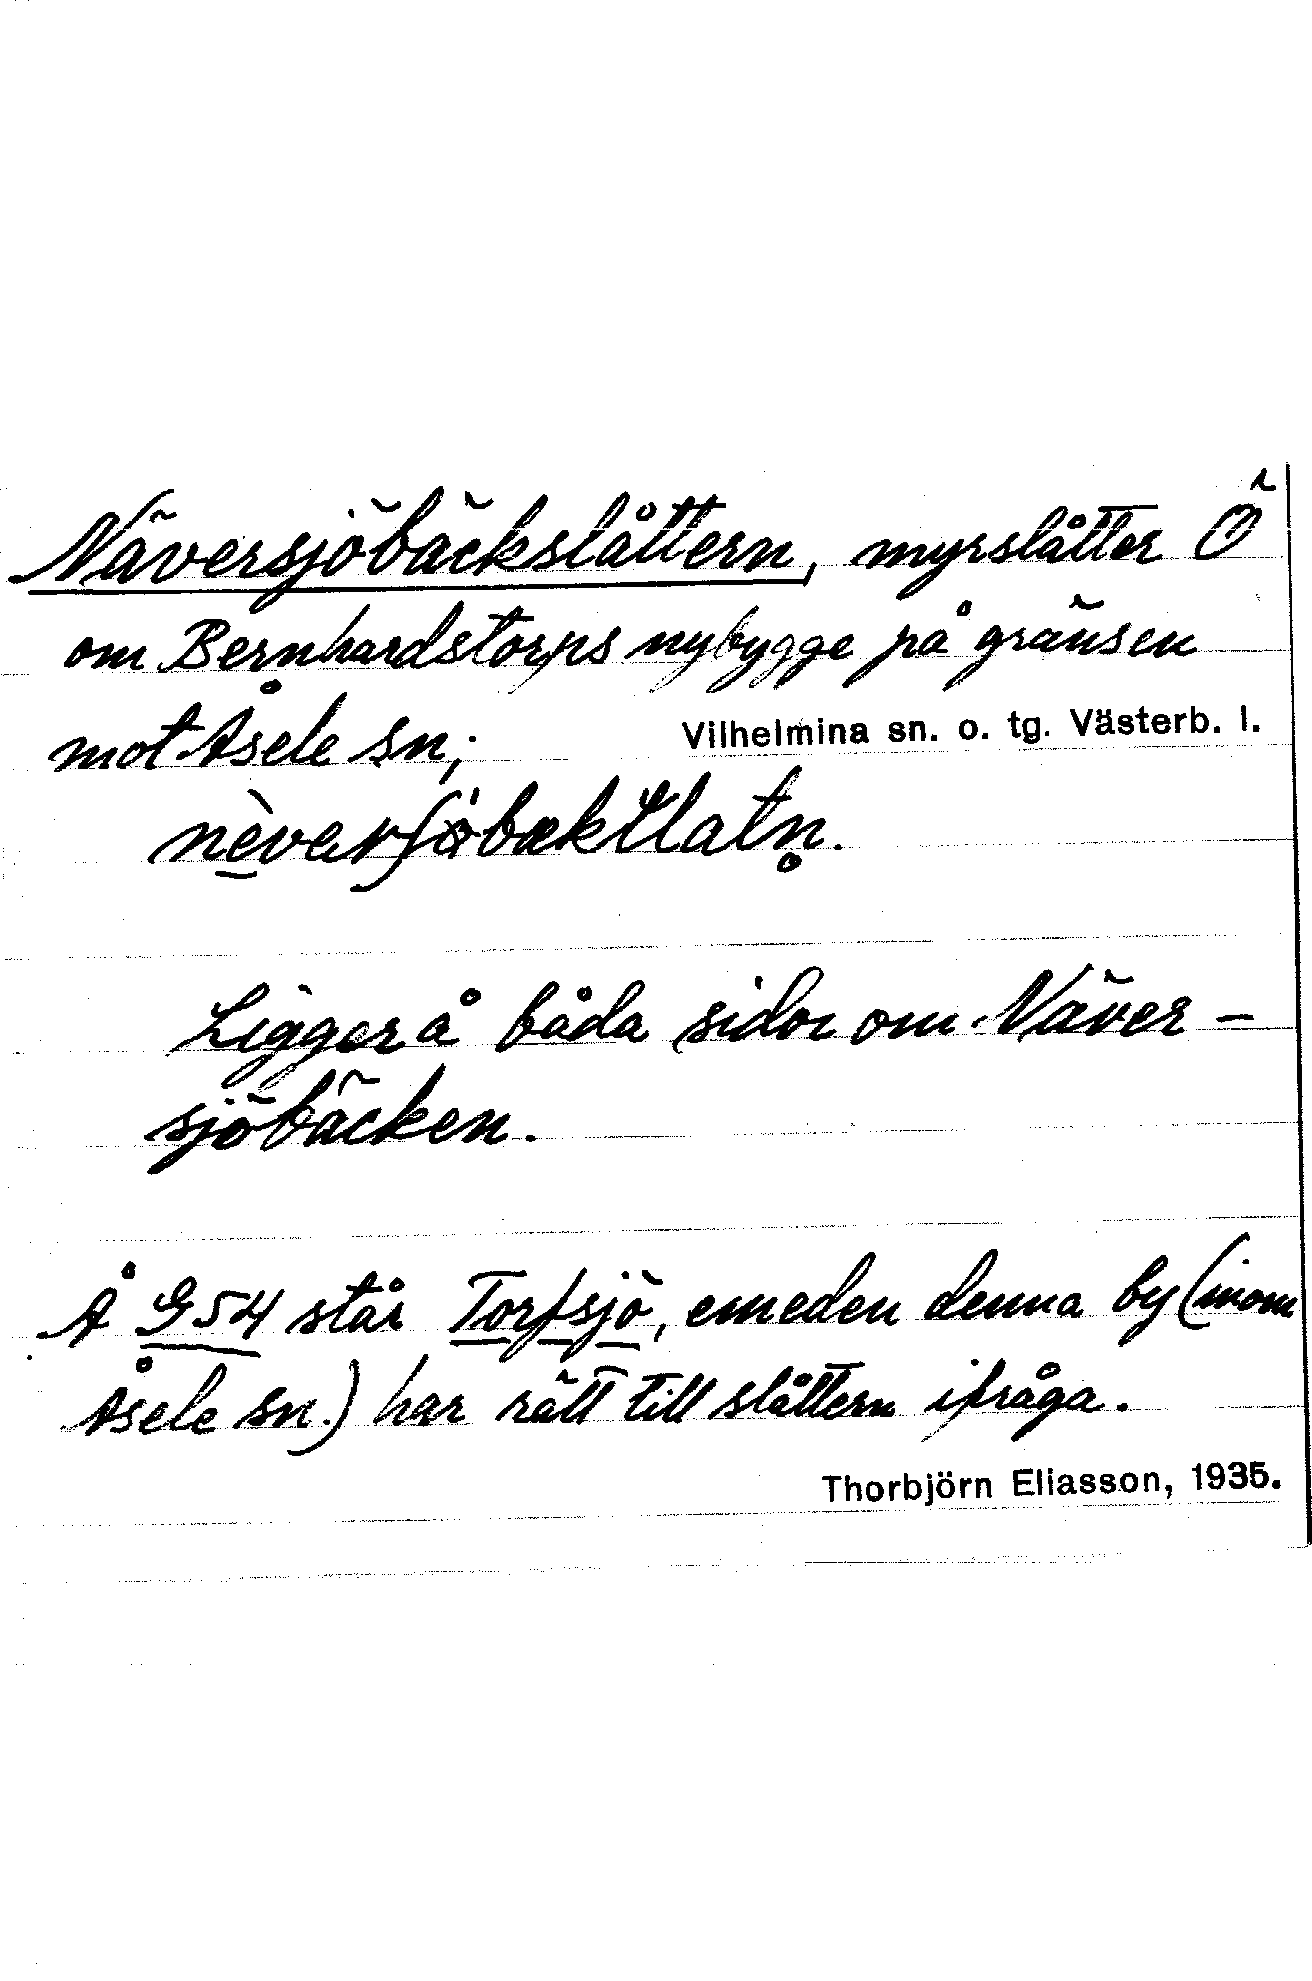 Näversjöbäckslåttern, myrslåtter Ö
om Bernhardstorps nybygge på gränsen
mot Åsele sn;
Vilhelmina sn. o. tg. Västerb. l.
Ligger å båda sidor om Näver-
sjöbäcken.
Å G54 står Torfsjö, emeden denna by (inom
Åsele sn.) har rätt till slåttern ifråga.
Thorbjörn Eliasson, 1935.